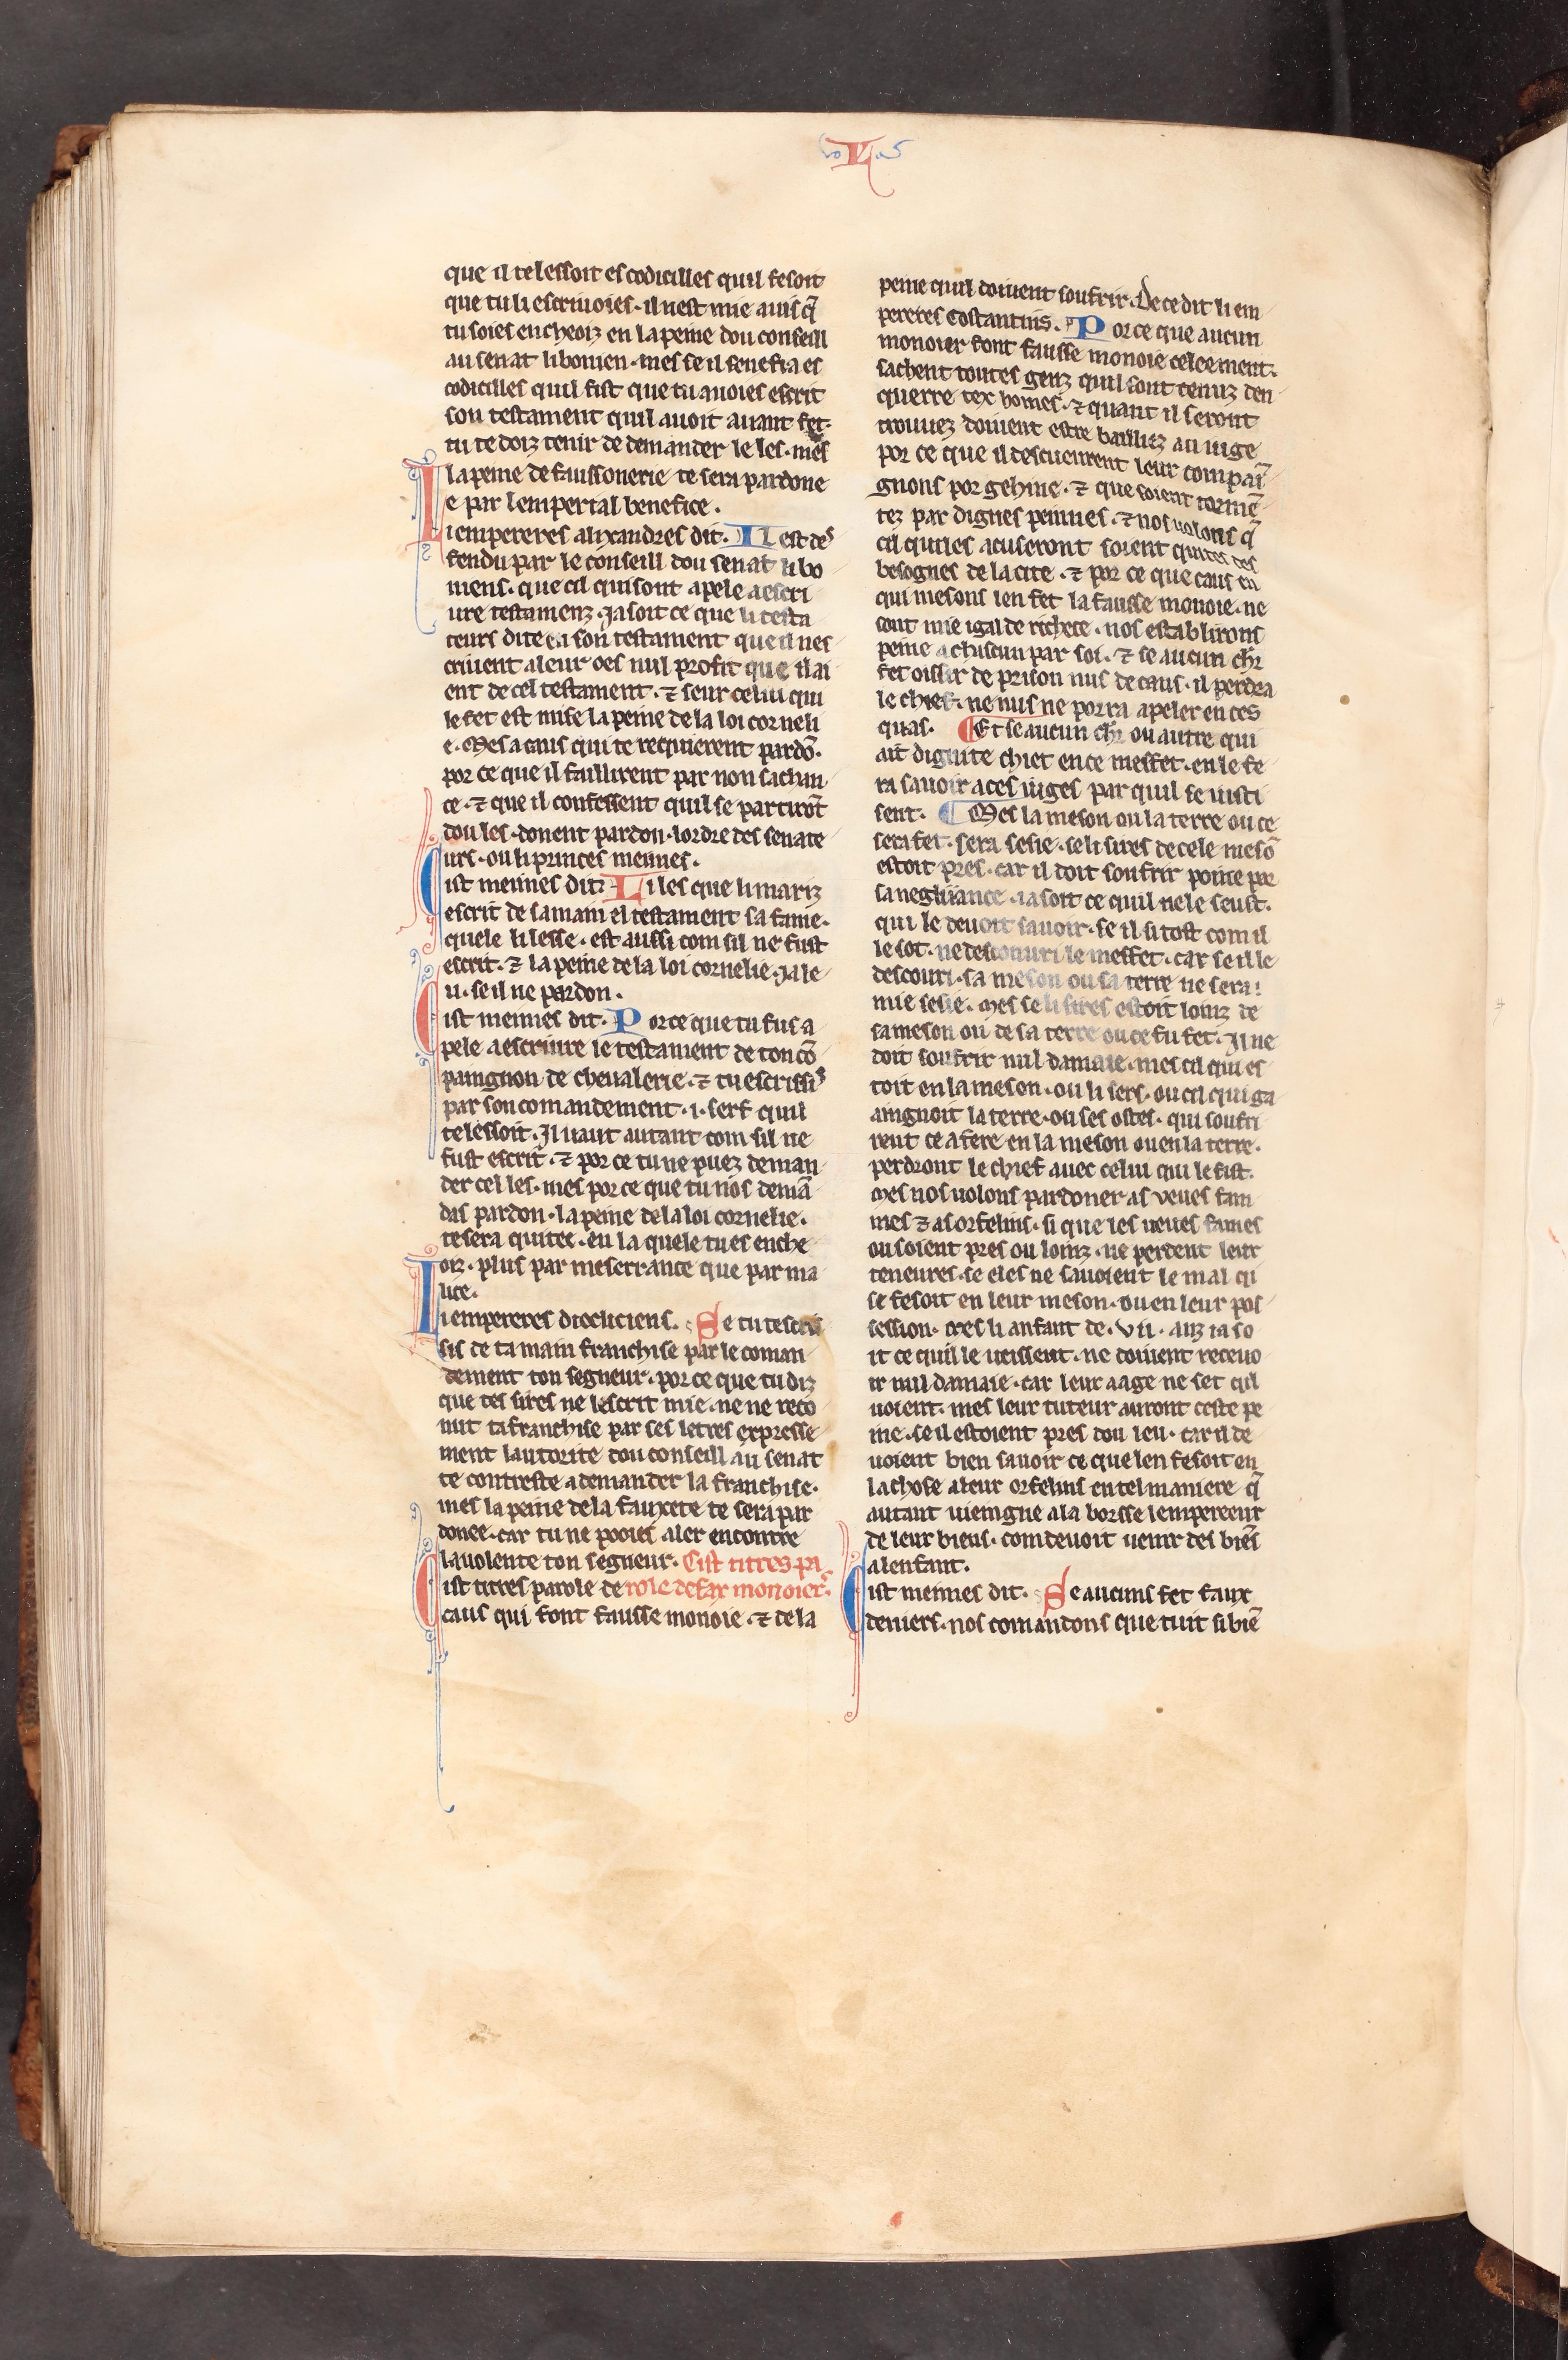 que il te lessoit es codicilles quil fesoit
que tu li escriuoies. il nest mie auis q̃
tu soies encheoiz en la peine dou conseill
au senat libonien. mes se il senefia es
codicilles quil fist que tu auoies escrit
son testament quil auoit auant fet.
tu te doiz tenir de demander le les. mes
la peine de faussonerie te sera pardone
e par lemperial benefice.
Li empereres alixandres dit. IL est de
fendu par le conseill dou senat libo
niens. que cil qui sont apele a escri
ure testamenz. Ja soit ce que li testa
teurs dite en son testament que il nes
criuent a leur oes nul profit que il ai
ent de cel testament. ⁊ seur celui qui
le fet est mise la peine de la loi corneli
e. Mes a caus qui te requierent pardõ.
por ce que il faillirent par non sachan
ce. ⁊ que il confessent quil se partirõt
dou les. donent pardon. lordre des senate
urs. ou li princes meïmes.
Cist meïmes dit. Li les que li mariz
escrit de sa main el testament sa fame.
quele li lesse. est aussi com sil ne fust
escrit. ⁊ la peine de la loi cornelie. Ja le
u. se il ne pardon.
Cist meïmes dit. Por ce que tu fus a
pele a escriure le testament de ton cõ
paingnon de cheualerie. ⁊ tu escrissis
par son comandement .i. serf quil
te lessoit. Il uaut autant com sil ne
fust escrit. ⁊ por ce tu ne puez deman
der cel les. mes por ce que tu nos demã
das pardon. la peine de la loi cornelie.
te sera quitee. en la quele tu es enche
oiz. plus par meserrance que par ma
lice.
Li empereres dioclïciens. Se tu tescris
sis de ta main franchise par le coman
dement ton segneur. por ce que tu diz
que tes sires ne lescrit mie. ne ne reco
nut ta franchise par ses letres expresse
ment lautorite dou conseill au senat
te contreste a demander la franchise.
mes la peine de la fauxete te sera par
donee. car tu ne pooies aler encontre
la uolente ton segneur. Cist titres pa
Cist titres parole de role de fax monoiers.
caus qui font fausse monoie. ⁊ de la
peine quil doiuent soufrir. De ce dit li em
pereres Costantins. Por ce que aucun
monoier font fausse monoie celeement.
sachent toutes genz quil sont tenuz den
querre tex homes. ⁊ quant il seront
trouuez doiuent estre bailliz au iuge
por ce que il descueurent leur compai
gnons por gehine. ⁊ que soient tormẽ
tez par dignes peinnes. ⁊ nos uolons q̃
cil qui les acuseront soient quites des
besognes de la cite. ⁊ por ce que caus en
qui mesons len fet la fausse monoie. ne
sont mie igal de richece. nos establirons
peine a chascun par soi. ⁊ se aucun chr̃
fet oissir de prison nus de caus. il perdra
le chief. ne nus ne porra apeler en ces
quas. ¶ Et se aucun chr̃ ou autre qui
ait dignite chiet en ce meffet. en le fe
ra sauoir a ces iuges par quil se iusti
sent. ¶ Mes la meson ou la terre ou ce
sera fet. sera sesie. se li sires de cele mesõ
estoit pres. car il doit soufrir poine por
sa negliiance. ia soit ce quil ne le seust.
qui le deuoit sauoir. se il si tost com il
le sot. ne desconuri le meffet. car se il le
descouri. sa meson ou sa terre ne sera
mie sesie. Mes se li sires estoit loinz de
sa meson ou de sa terre ou ce fu fet. Il ne
doit soufrir nul damaie. mes cil qui es
toit en la meson. ou li sers. ou cil qui ga
aingnoit la terre. ou ses ostes. qui soufri
rent ce a fere en la meson ou en la terre.
perdront le chief auec celui qui le fist.
Mes nos uolons pardoner as veues fam
mes ⁊ as orfelins. si que les ueues fames
ou soient pres ou loinz. ne perdent leur
teneures. se eles ne sauoient le mal qi
se fesoit en leur meson. ou en leur pos
session. Mes li anfant de .vii. anz ia so
it ce quil le ueissent. ne doiuent receuo
ir nul damaie. car leur aage ne set quil
uoient. mes leur tuteur auront ceste pe
ine. se il estoient pres dou leu. car il de
uoient bien sauoir ce que len fesoit en
la chose a leur orfelins en tel maniere q̃
autant uieingne a la borsse lempereeur
de leur biens. com deuoit uenir des biẽs
a lenfant.
Cist meïmes dit. Se aucuns fet faux
deniers. nos comandons que tuit si biẽ